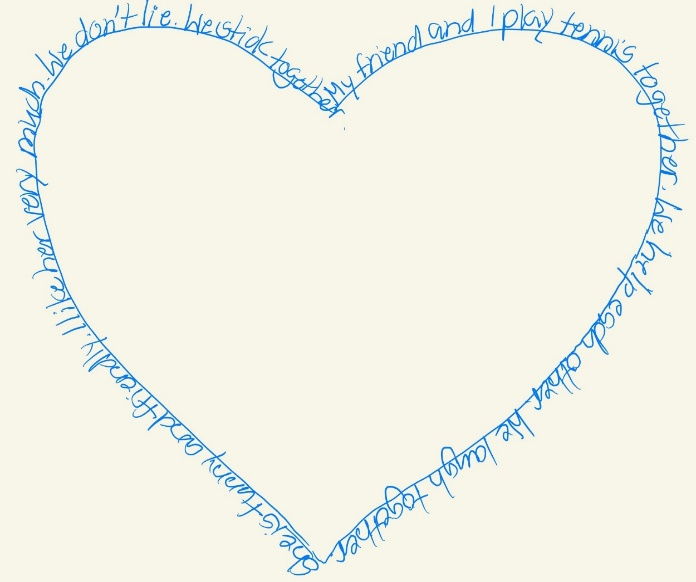 My friend and I play tennis together. We help each other. We laugh together. She is funny and friendly. I like her very much. We don't lie. We stick together.